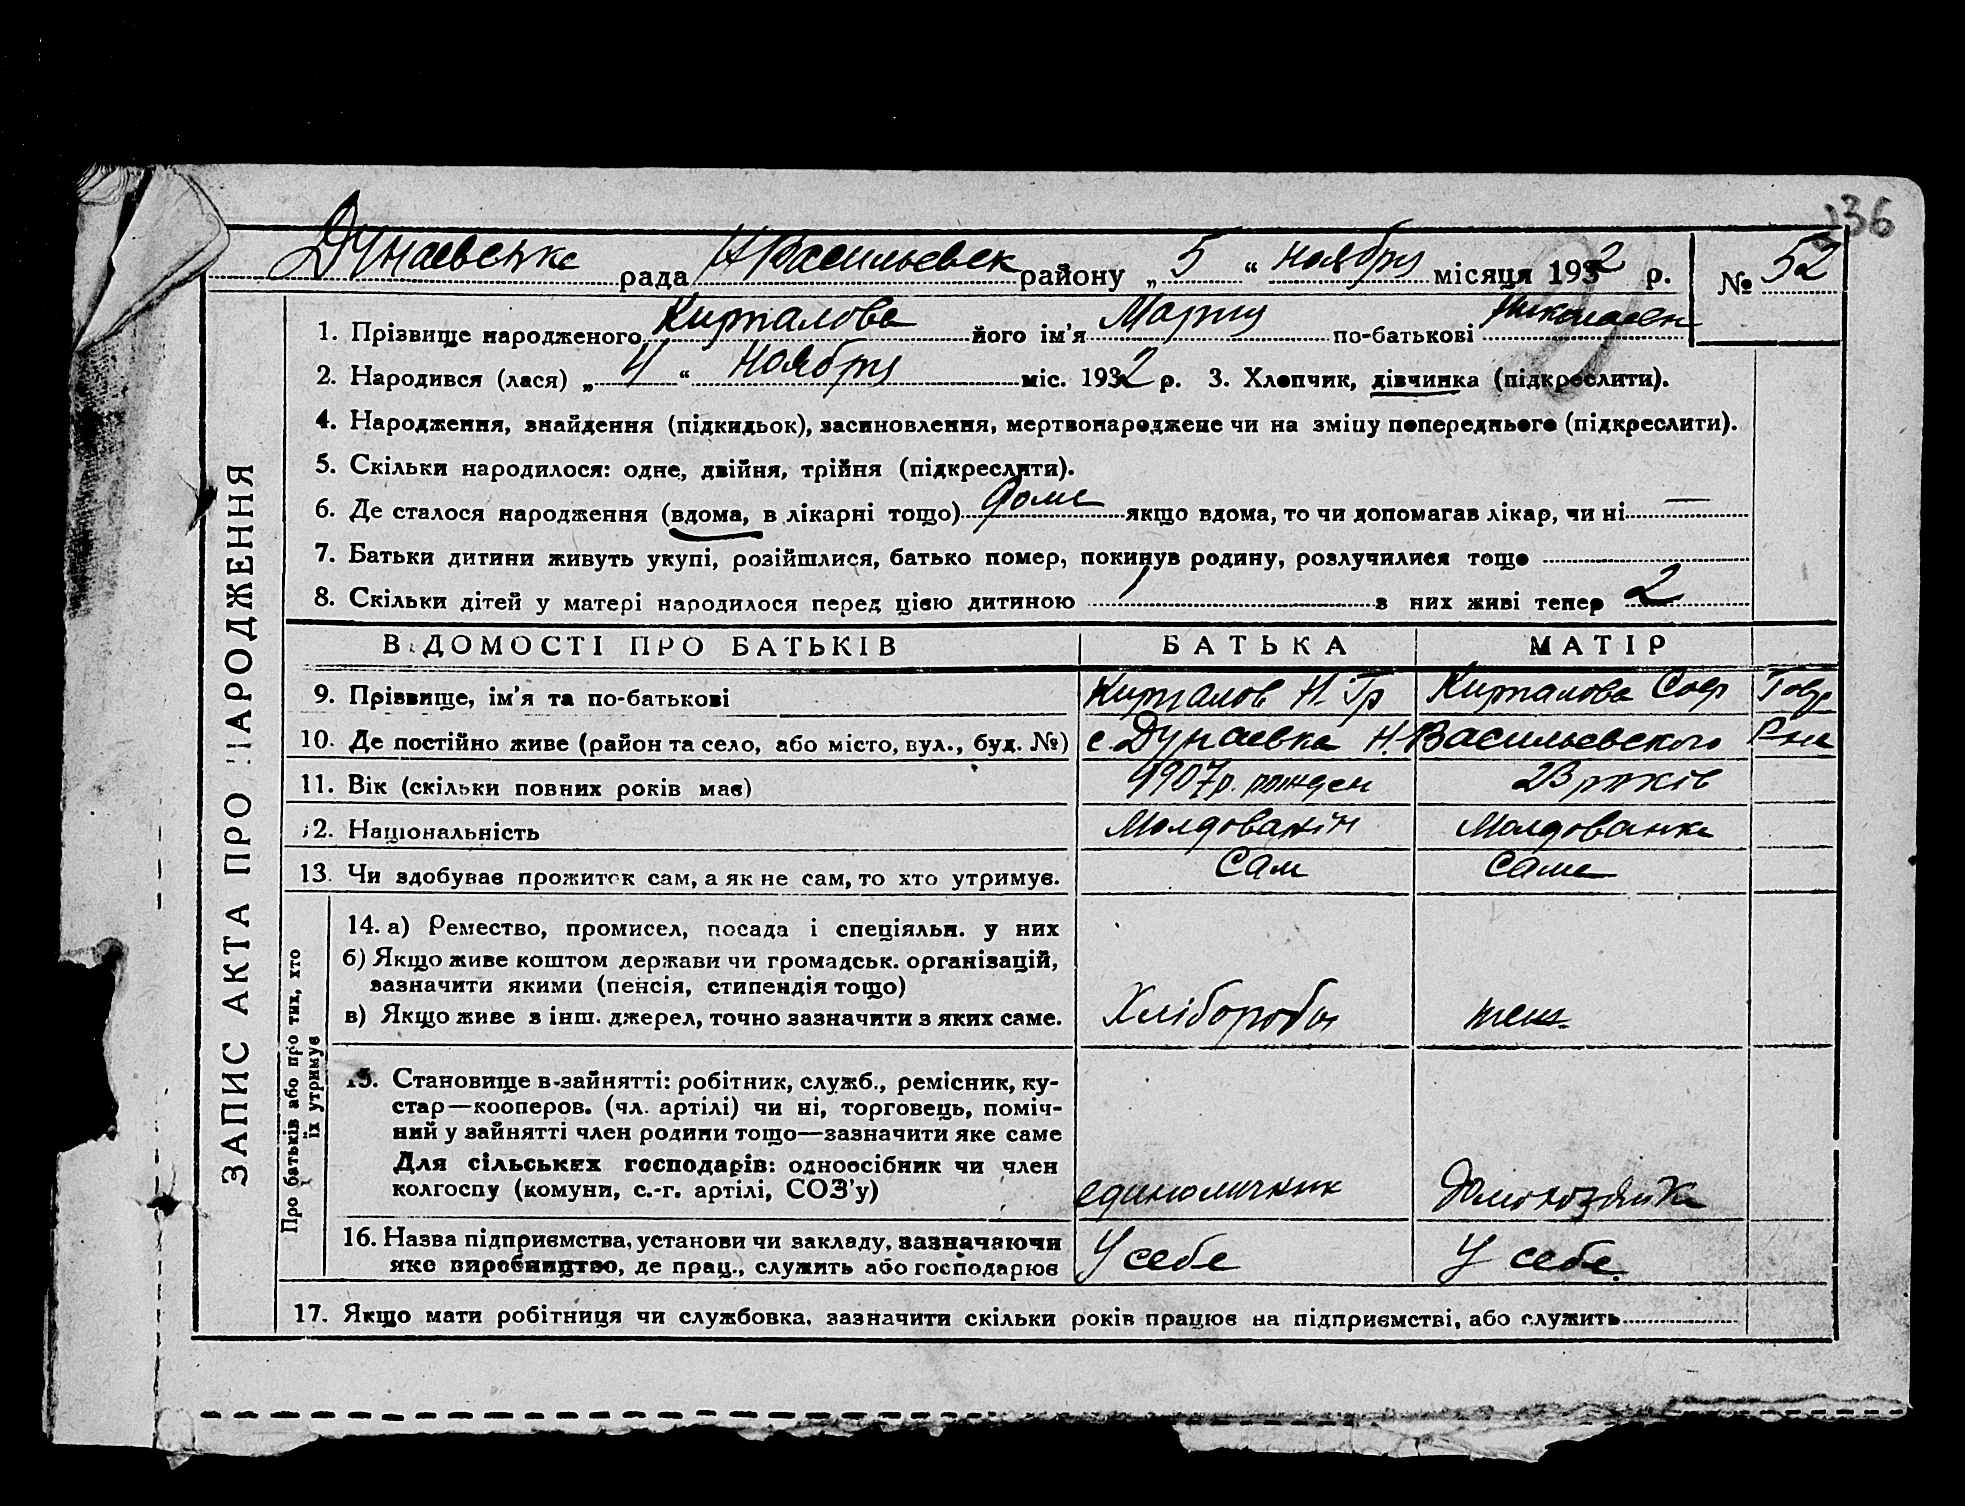 136
Дунаевське рада Н Васильевск району „ 5 “ ноября місяця 1932 р. № 52
ЗАПИС АКТА ПРО НАРОДЖЕННЯ
1. Прізвище народженого Кирталова його ім’я Мария по-батькові Николаевн
2. Народився (лася) „ 4 “ Ноября міс. 1932 р. 3. Хлопчик, дівчинка (підкреслити).
4. Народження, знайдення (підкидьок), засиновлення, мертвонароджене чи на зміну попереднього (підкреслити).
5. Скільки народилося: одне, двійня, трійня (підкреслити).
6. Де сталося народження (вдома, в лікарні тощо) доме якщо вдома, то чи допомагав лікар, чи ні —
7. Батьки дитини живуть укупі, розійшлися, батько помер, покинув родину, розлучилися тощо
8. Скільки дітей у матері народилося перед цією дитиною 1 з них живі тепер 2
ВІДОМОСТІ ПРО БАТЬКІВ БАТЬКА МАТІР
9. Прізвище, ім’я та по-батькові Кирталов Н. Гр Кирталова Соф
10. Де постійно живе (район та село, або місто, вул., буд. №) с. Дунаевка Н. Васильевского Р-на
11. Вік (скільки повних років має) 1907 р. рожден 23 років
12. Національність Молдованін Молдованка
13. Чи здобував прожиток сам, а як не сам, то хто утримує. Сам Сама
Про батьків або про тих, хто їх утримує
14. а) Ремество, промисел, посада і спеціяльн. у них
б) Якщо живе коштом держави чи громадськ. організацій,
зазначити якими (пенсія, стипендія тощо)
в) Якщо живе з інш. джерел, точно зазначити з яких саме. Хлібороби
15. Становище в-зайнятті: робітник, служб., ремісник, ку-
стар—кооперов. (чл. артілі) чи ні, торговець, поміч-
ний у зайнятті член родини тощо—зазначити яке саме
Для сільських господарів: одноосібник чи член
колгоспу (комуни, с.-г. артілі, СОЗ’у) единоличник домохозяйка
16. Назва підприємства, установи чи закладу, зазначаючи
яке виробництво, де прац., служить або господарює У себе У себе
17. Якщо мати робітниця чи службовка, зазначити скільки років працює на підприємстві, або служить